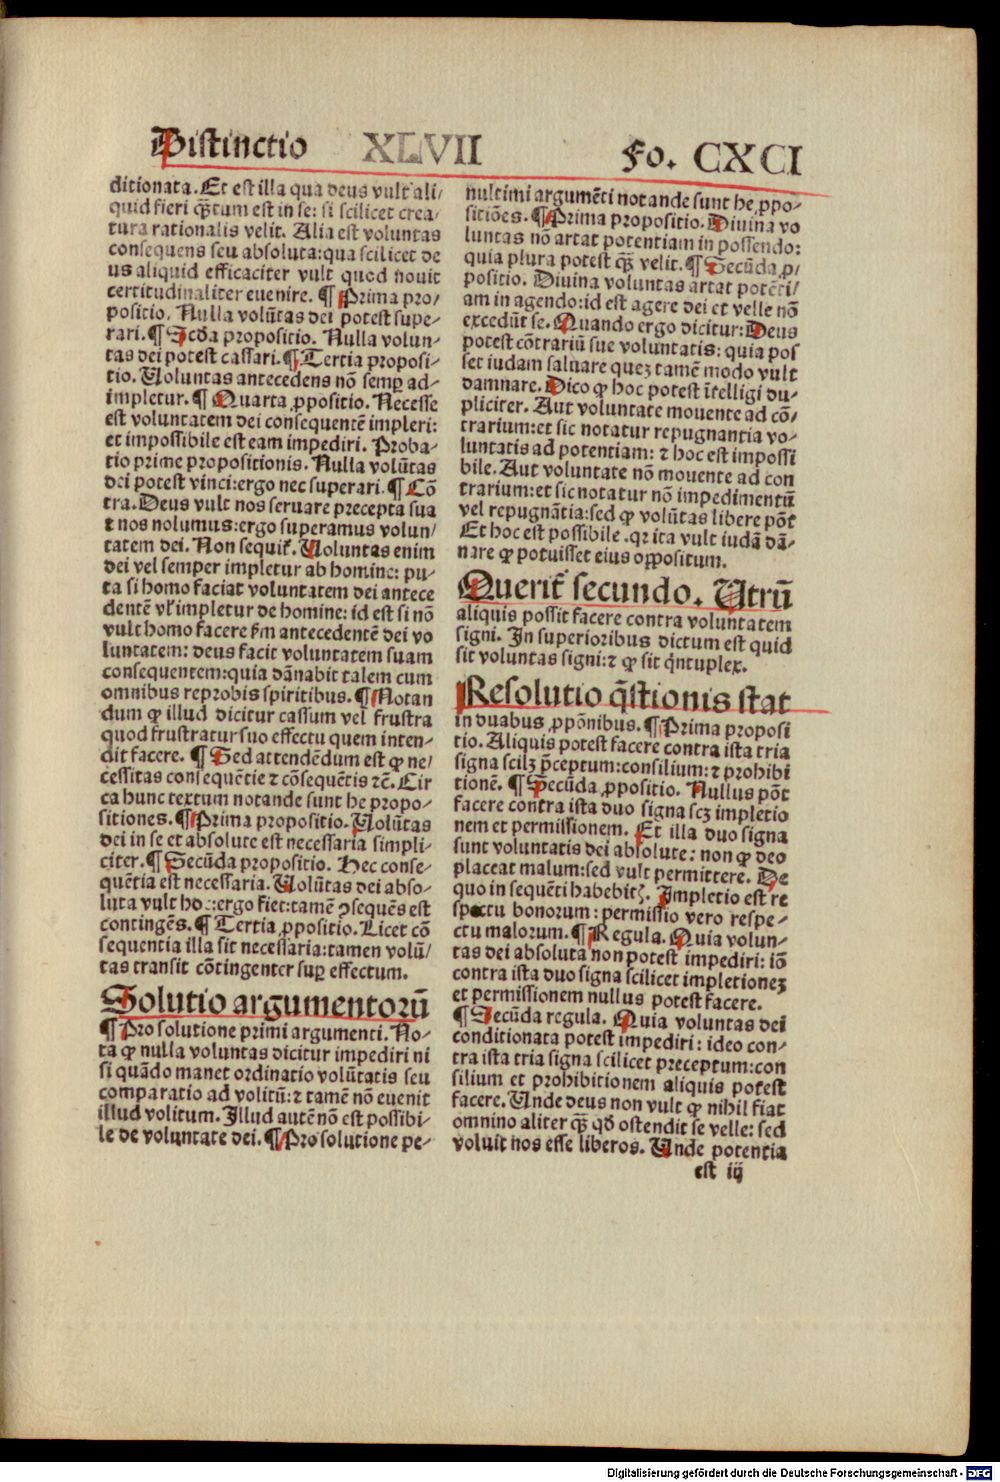 Distinctio XLVII Fo. CXCI
ditionata. Et est illa qua deus vult ali-
quid fieri q̃tum est in se: si scilicet crea-
tura rationalis velit. Alia est voluntas
consequens seu absoluta: qua scilicet de
us aliquid efficaciter vult quod nouit
certitudinaliter euenire. ¶ Prima pro-
positio. Nulla volũtas dei potest supe-
rari. ¶ Scđa propositio. Nulla volun-
tas dei potest cassari. ¶ Tertia proposi-
tio. Uoluntas antecedens nõ semꝑ ad-
impletur. ¶ Quarta ꝓpositio. Necesse
est voluntatem dei consequentẽ impleri:
et impossibile est eam impediri. Proba-
tio prime propositionis. Nulla volũtas
dei potest vinci: ergo nec superari. ¶ Cõ
tra. Deus vult nos seruare precepta sua
⁊ nos nolumus: ergo superamus volun/
tatem dei. Non sequit̃. Uoluntas enim
dei vel semper impletur ab homine: pu-
ta si homo faciat voluntatem dei antece
dentẽ vl̓ impletur de homine: id est si nõ
vult homo facere fm antecedentẽ dei vo
luntatem: deus facit voluntatem suam
consequentem: quia dãnabit talem cum
omnibus reprobis spiritibus. ¶ Notan
dum ꝙ illud dicitur cassum vel frustra
quod frustratur suo effectu quem inten-
dit facere. ¶ Sed attendẽdum est ꝙ ne/
cessitas consequẽtie ⁊ cõsequẽtis ⁊c̃. Cir
ca hunc textum notande sunt he propo-
sitiones. ¶ Prima propositio. Uolũtas
dei in se et absolute est necessaria simpli-
citer. ¶ Secũda propositio. Hec conse-
quẽtia est necessaria. Uolũtas dei abso-
luta vult hoc: ergo fiet: tamẽ ꝯsequẽs est
contingẽs. ¶ Tertia ꝓpositio. Licet cõ
sequentia illa sit necessaria: tamen volũ/
tas transit cõtingenter suꝑ effectum.
Solutio argumentorũ
¶ Pro solutione primi argumenti. No-
ta ꝙ nulla voluntas dicitur impediri ni
si quãdo manet ordinatio volũtatis seu
comparatio ad volitũ: ⁊ tamẽ nõ euenit
illud volitum. Illud autẽ nõ est possibi-
le de voluntate dei. ¶ Pro solutione pe-
nultimi argumẽti notande sunt he ꝓpo-
sitiões. ¶ Prima propositio. Diuina vo
luntas nõ artat potentiam in possendo:
quia plura potest q̃ velit. ¶ Secũda ꝓ/
positio. Diuina voluntas artat potẽti/
am in agendo: id est agere dei et velle nõ
excedũt se. Quando ergo dicitur: Deus
potest cõtrariũ sue voluntatis: quia pos
set iudam saluare queʒ tamẽ modo vult
damnare. Dico ꝙ hoc potest ĩtelligi du-
pliciter. Aut voluntate mouente ad cõ-
trarium: et sic notatur repugnantia vo-
luntatis ad potentiam: ⁊ hoc est impossi
bile. Aut voluntate nõ mouente ad con
trarium: et sic notatur nõ impedimentũ
vel repugnãtia: sed ꝙ volũtas libere põt
Et hoc est possibile .qꝛ ita vult iudã dã-
nare ꝙ potuisset eius oꝓpositum.
Querit̃ secundo. Utrũ
aliquis possit facere contra voluntatem
signi. In superioribus dictum est quid
sit voluntas signi: ⁊ ꝙ sit q̃ntuplex.
Resolutio q̃stionis stat
in duabus ꝓpõnibus. ¶ Prima proposi
tio. Aliquis potest facere contra ista tria
signa scilʒ p̃ceptum: consilium: ⁊ prohibi
tionẽ. ¶ Secũda ꝓpositio. Nullus põt
facere contra ista duo signa scʒ impletio
nem et permissionem. Et illa duo signa
sunt voluntatis dei absolute: non ꝙ deo
placeat malum: sed vult permittere. De
quo in sequẽti habebit̃. Impletio est re
spectu bonorum: permissio vero respe-
ctu malorum. ¶ Regula. Quia volun-
tas dei absoluta non potest impediri: iõ
contra ista duo signa scilicet impletioneʒ
et permissionem nullus potest facere.
¶ Secũda regula. Quia voluntas dei
conditionata potest impediri: ideo con-
tra ista tria signa scilicet preceptum: con
silium et prohibitionem aliquis potest
facere. Unde deus non vult ꝙ nihil fiat
omnino aliter q̃ qđ ostendit se velle: sed
voluit nos esse liberos. Unde potentia
est iij
Digitalisierung gefördert durch die Deutsche Forschungsgemeinschaft - DFG